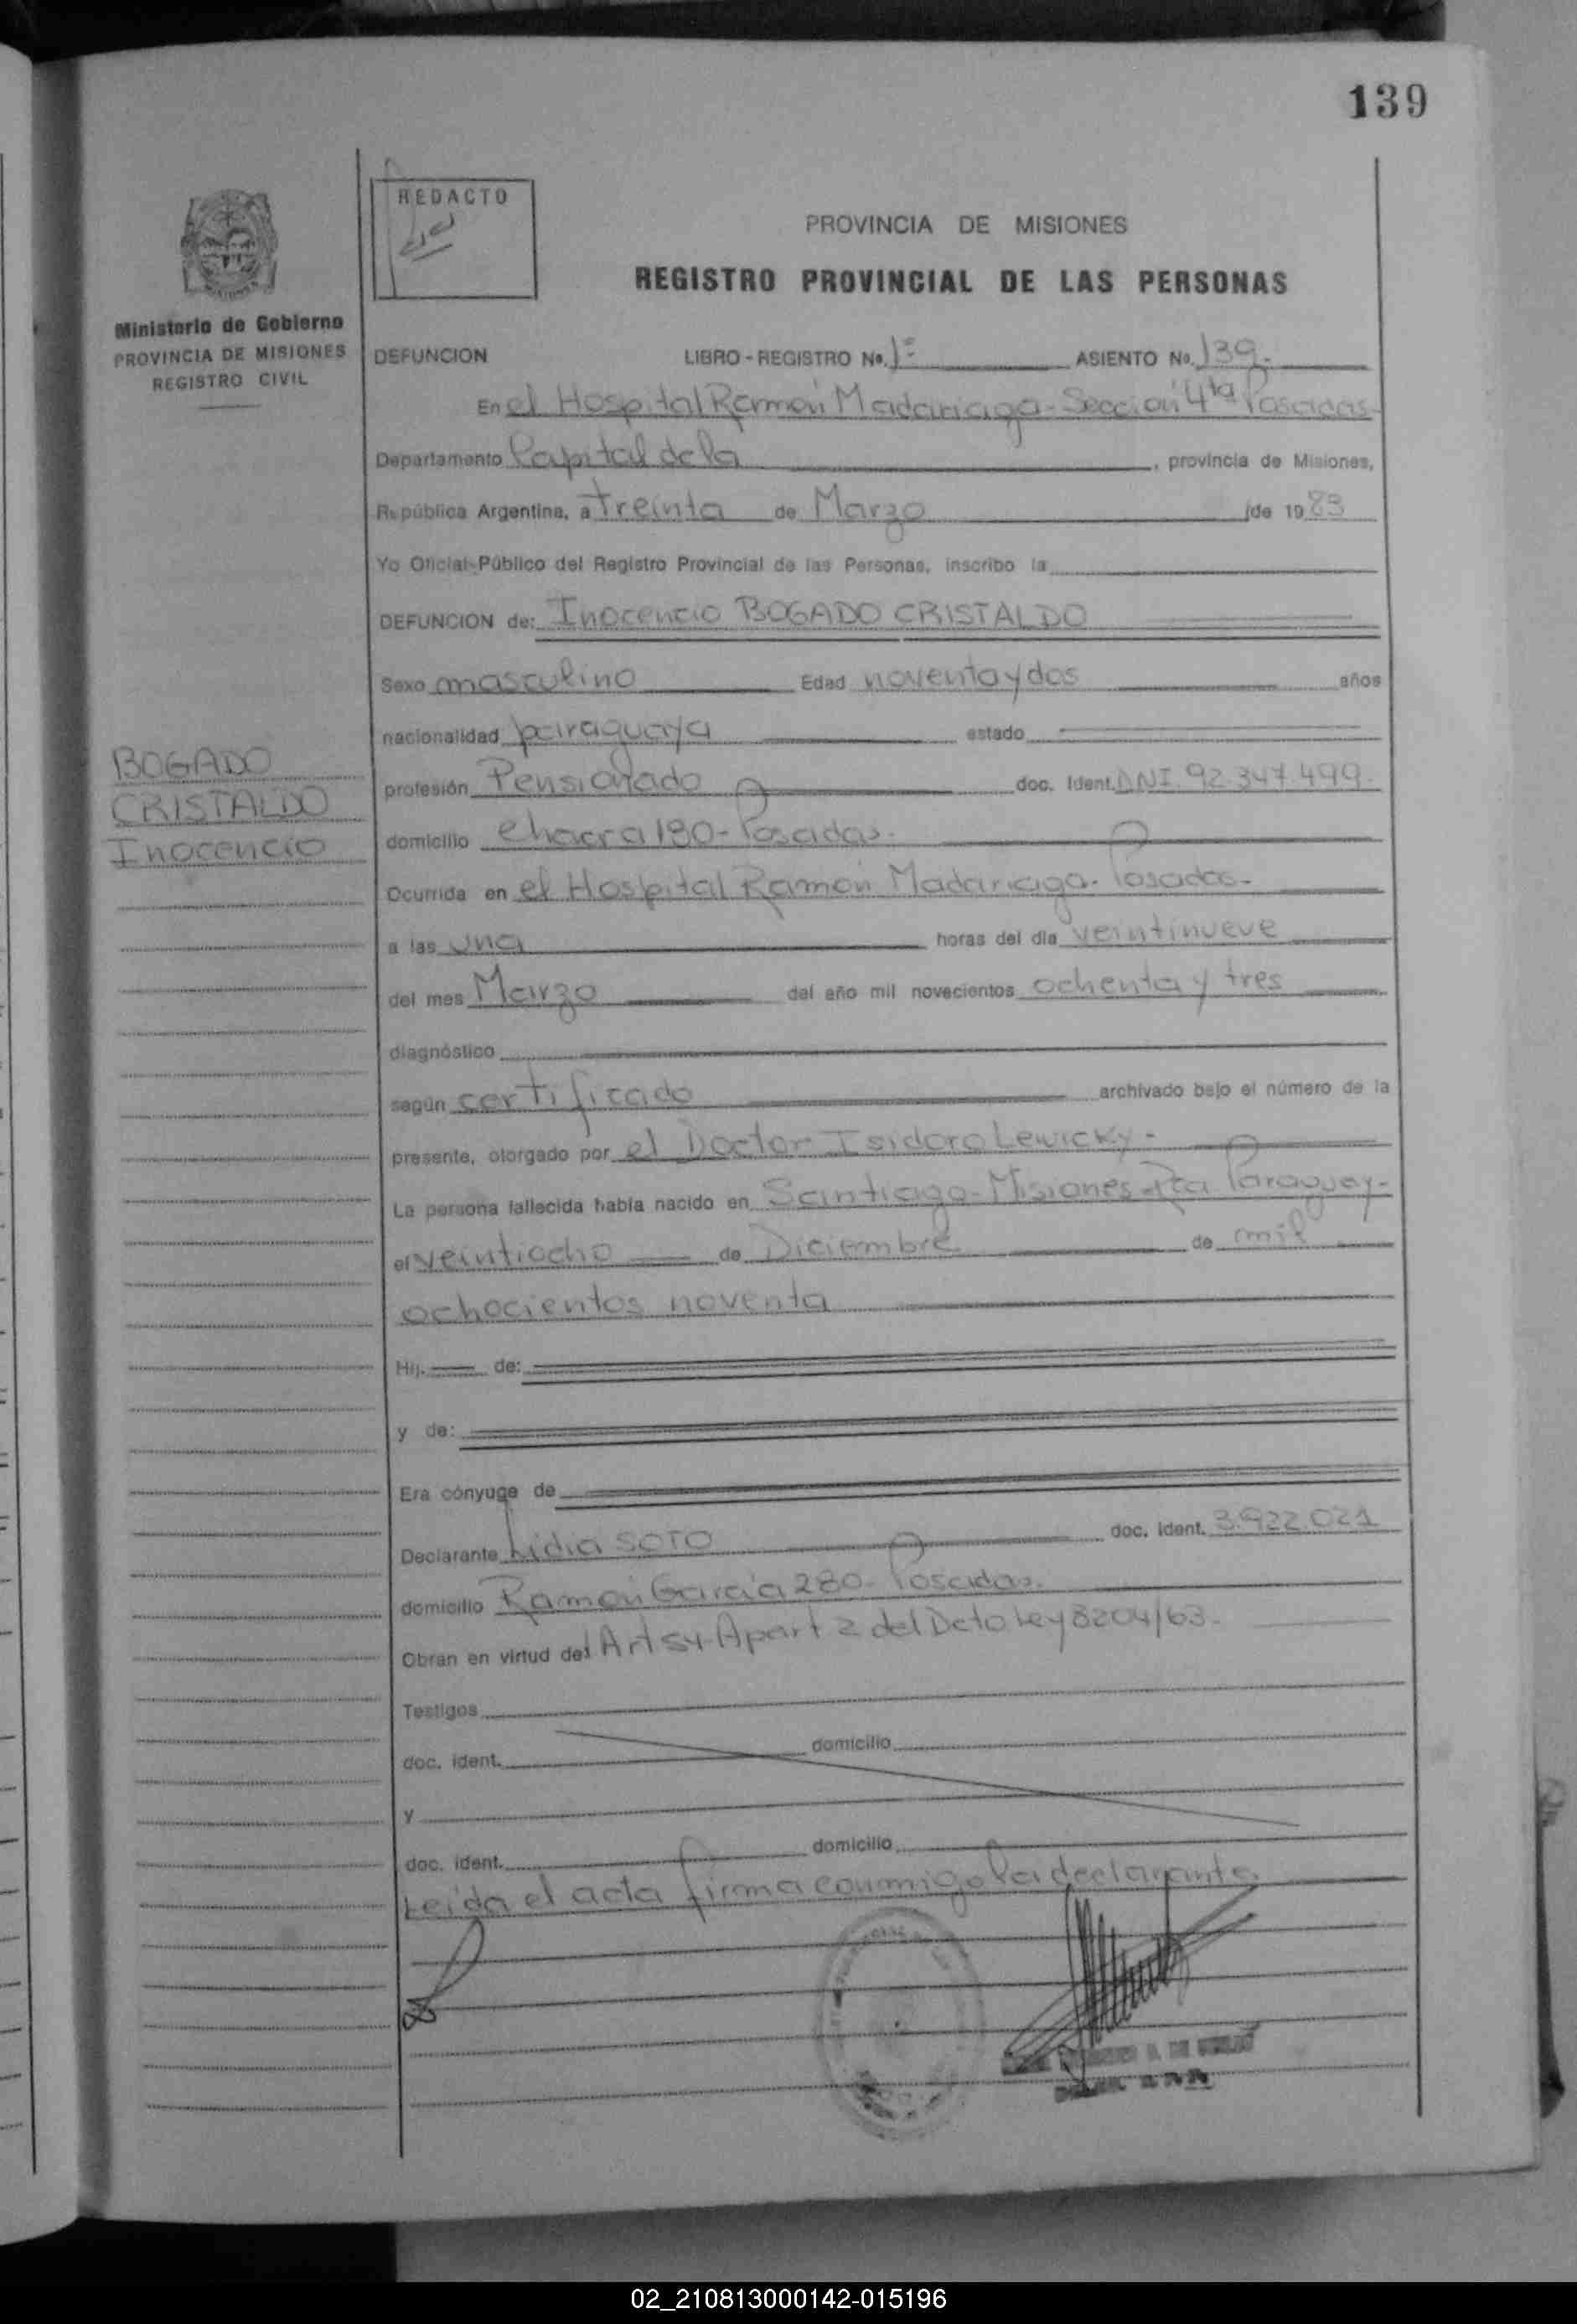 139
REDACTO
PROVINCIA DE MISIONES
REGISTRO PROVINCIAL DE LAS PERSONAS
Ministerio de Gobierno
PROVINCIA DE MISIONES
REGISTRO CIVIL
DEFUNCION LIBRO - REGISTRO No. 1º ASIENTO No. 139.
En el Hospital Ramón Madariaga - Sección 4ta Posadas-
Departamento Capital de la , provincia de Misiones,
República Argentina, a treinta de Marzo de 1983
Yo Oficial Público del Registro Provincial de las Personas, inscribo la
DEFUNCION de: Inocencio BOGADO CRISTALDO
Sexo masculino Edad noventa y dos años
nacionalidad paraguaya estado
BOGADO
CRISTALDO
Inocencio
profesión Pensionado doc. Ident. DNI. 92.347.499.
domicilio Chacra 190 - Posadas.
Ocurrida en el Hospital Ramón Madariaga. Posadas-
a las una horas del día veintinueve
del mes Marzo del año mil novecientos ochenta y tres
diagnóstico
según certificado archivado bajo el número de la
presente, otorgado por el Doctor Isidoro Lewicky -
La persona fallecida había nacido en Santiago - Misiones - Rca Paraguay -
el veintiocho de Diciembre de mil
ochocientos noventa
Hij. de:
y de:
Era cónyuge de
Declarante Lidia SOTO doc. ident. 3.922.021
domicilio Ramón García 280 - Posadas.
Obran en virtud del Art 54 Apart 2 del Dcto Ley 8204/63.
Testigos
doc. ident. domicilio
y
doc. ident. domicilio
Leída el acta firma conmigo la declarante.
02_210813000142-015196